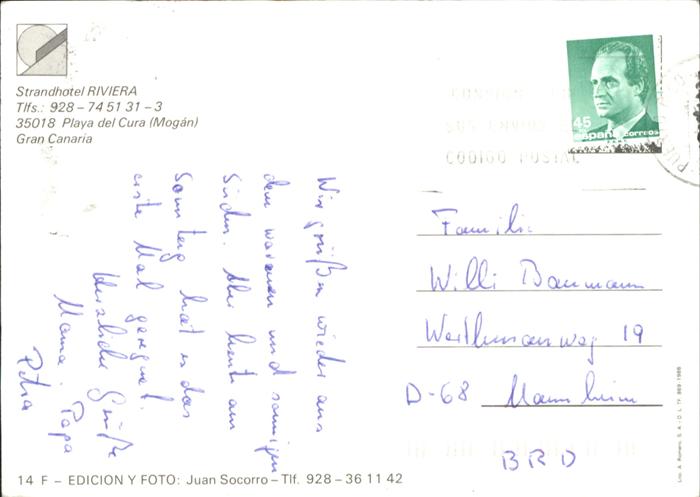 Strandhotel RIVIERA
Tlfs.: 928 - 74 51 31 - 3
35018 Playa del Cura (Mogán)
Gran Canaria
45
españa
correos
CODIGO POSTAL
Wir grüßen wieder aus
dem warmen und sonnigen
Süden. Aber heute am
Sonntag hat es das
erste Mal geregnet.
Herzliche Grüße
Mama, Papa
Petra
Familie
Willi Baumann
19
D-68 Mannheim
BRD
14 F – EDICION Y FOTO: Juan Socorro – Tlf. 928 - 36 11 42